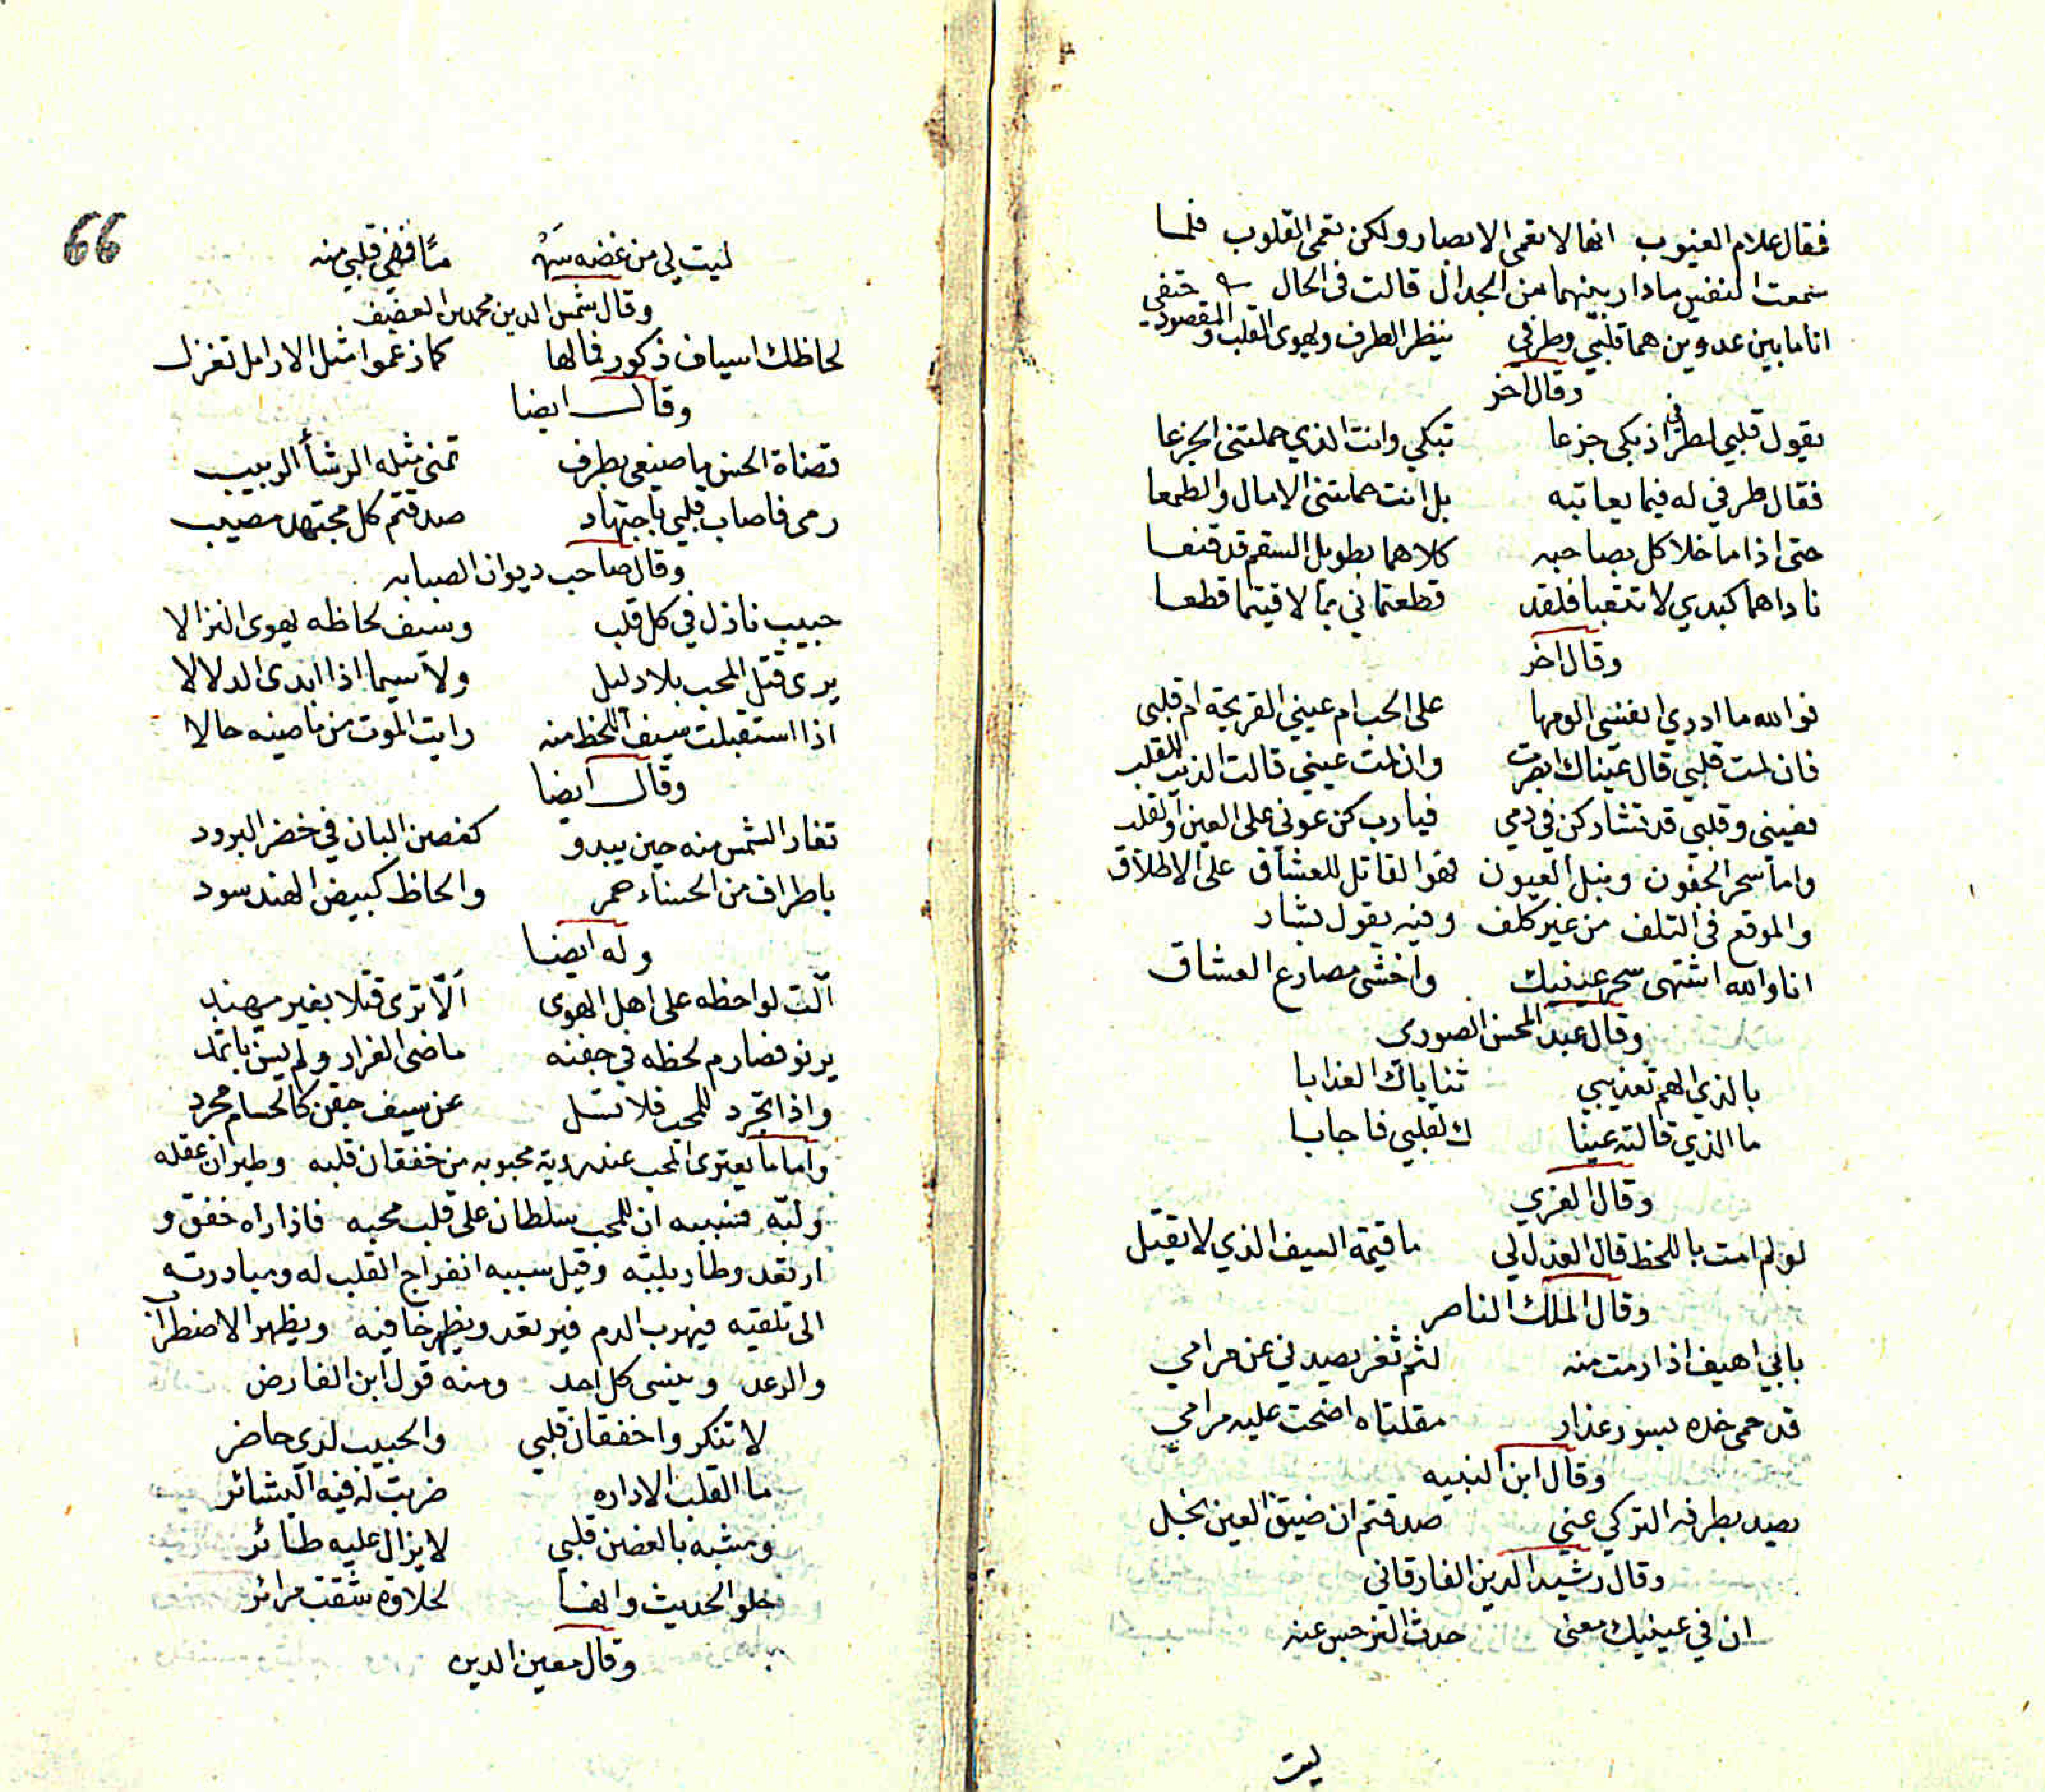 فقال علام الغيوب انها لا تعمى الابصار ولكن تعمى القلوب فلما
سمعت النفس ما دار بينهما من الجدال قالت في الحال
انا ما بين عدوين هما قلبي وطرفي ينظر الطرف ويهوى القلب والمقصود حتفي
وقال اخر
يقول قلبي لطرفي اذ بكى جزعا تبكي وانت الذي حملتني الجزعا
فقال طرفي له فيما يعاتبه بل انت حملتني الامال والطمعا
حتى اذا ما خلا كل بصاحبه كلاهما بطويل السقم قد قنعا
ناداهما كبدي لا تتعبا فلقد قطعتماني بما لاقيتما قطعا
وقال اخر
فوالله ما ادري انفسي الومها على الحب ام عيني القريحة ام قلبي
فان لمت قلبي قال عيناك ابصرت وان لمت عيني قالت الذنب للقلب
فعيني وقلبي قد تشاركن في دمي فيا رب كن عوني على العين والقلب
واما سحر الجفون ونبل العيون فهو القاتل للعشاق على الاطلاق
والموقع في التلف من غير كلف وفيه يقول بشار
انا والله اشتهي سحر عينيك واخشى مصارع العشاق
وقال عبد المحسن الصوري
بالذي الهم تعذيبي ثناياك العذابا
ما الذي قالته عينا ك لقلبي فاجابا
وقال الغزي
لو لم امت باللحظ قال العذل لي ما قيمة السيف الذي لا يقتل
وقال الملك الناصر
بابي اهيف اذا رمت منه لثم ثغر يصدني عن مرامي
قد حمى خده بسور عذار مقلتاه اضحت عليه مرامي
وقال ابن النبيه
يصد بطرفه التركي عني صدقتم ان ضيق العين بخل
وقال رشيد الدين الفارقاني
ان في عينيك معنى حدث النرجس عنه
ليت
66
ليت لي من غضه سهْ مًا ففي قلبي منه
وقال شمس الدين محمد بن العفيف
لحاظك اسياف ذكور فما لها كما زعموا مثل الارامل تغزل
وقال ايضا
قضاة الحسن ما صنعي بطرف تمنى مثله الرشأ الربيب
رمى فاصاب قلبي باجتهاد صدقتم كل مجتهد مصيب
وقال صاحب ديوان الصبابه
حبيب نازل في كل قلب وسيف لحاظه يهوى النزالا
يرى قتل المحب بلا دليل ولا سيما اذا ابدى الدلالا
اذا استقبلت سيف اللحظ منه رايت الموت من ماضيه حالا
وقال ايضا
تغار الشمس منه حين يبدو كغصن البان في خضر البرود
باطراف من الحناء حمر والحاظ كبيض الهند سود
وله ايضا
آلت لواحظه على اهل الهوى ألّا ترى قتلا بغير مهند
يرنو فصارم لحظه في جفنه ماضي الغرار ولم يبن باثمد
واذا تجرد للمحب فلا تسل عن سيف جفن كالحسام مجرد
واما ما يعتري المحب عند روية محبوبه من خفقان قلبه وطيران عقله
ولبّه فسببه ان للمحب سلطان على قلب محبه فاذا راه خفق و
ارتعد وطار بلبّه وقيل سببه انفراج القلب له ومبادرته
الى تلقيه فيهرب الدم فيرتعد ويظهر خافيه ويظهر الاضطراب
والرعد وينسى كل احد ومنه قول ابن الفارض
لا تنكروا خفقان قلبي والحبيب لدي حاضر
ما القلب الا داره ضربت له فيه البشائر
ومشبه بالغصن قلبي لا يزال عليه طائر
حلو الحديث وانها لحلاوة شقت مرائر
وقال معين الدين